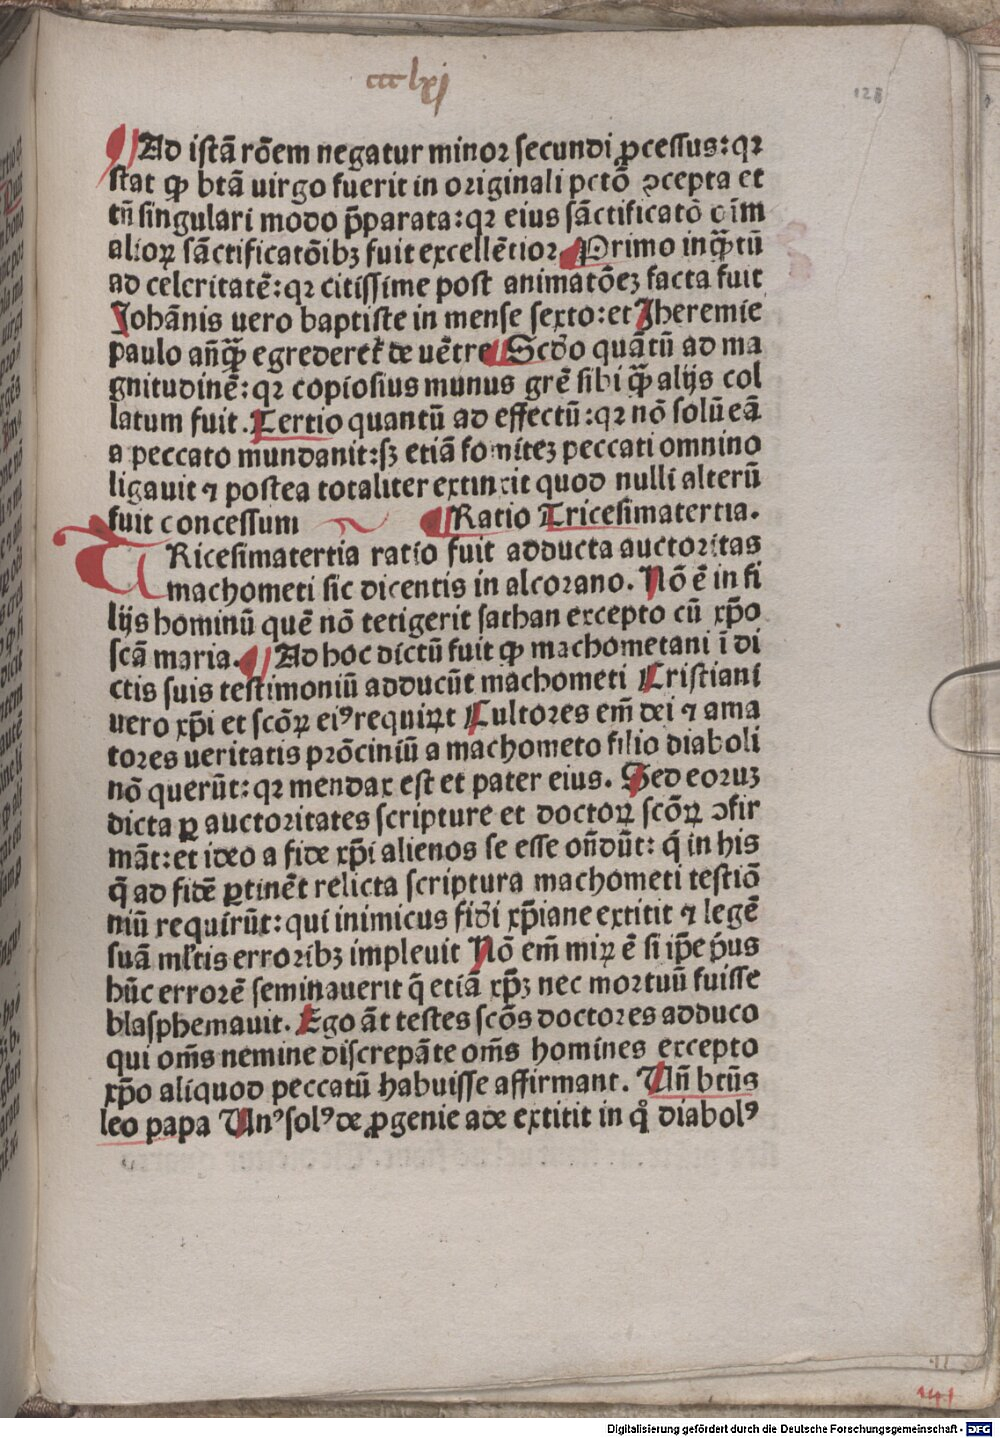 ccclxj
128
¶ Ad istã rõem negatur minor secundi ꝓcessus: qꝛ
stat ꝙ btã uirgo fuerit in originali pctõ ↄcepta et
tñ singulari modo p̃parata: qꝛ eius sãctificatõ oĩm
alioꝝ sãctificatõibꝫ fuit excellẽtior ¶ Primo inq̃ꝫtũ
ad celeritatẽ: qꝛ citissime post animatõeꝫ facta fuit
Johãnis uero baptiste in mense sexto: et Jheremie
paulo añq̃ꝫ egrederet᷑ de uẽtre ¶ Scd̃o quãtũ ad ma
gnitudinẽ: qꝛ copiosius munus grẽ sibi q̃ꝫ alijs col
latum fuit. Tertio quantũ ad effectũ: qꝛ nõ solũ eã
a peccato mundauit: sꝫ etiã fomiteꝫ peccati omnino
ligauit ⁊ postea totaliter extinxit quod nulli alterũ
fuit concessum ¶ Ratio Tricesimatertia.
TRicesimatertia ratio fuit adducta auctoritas
machometi sic dicentis in alcorano. Nõ ẽ in fi
lijs hominũ quẽ nõ tetigerit sathan excepto cũ xp̃o
scã maria. ¶ Ad hoc dictũ fuit ꝙ machometani ĩ di
ctis suis testimoniũ adducũt machometi Cristiani
uero xp̃i et scõꝝ eiꝰ requirũt Cultores em̃ dei ⁊ ama
tores ueritatis prõciniũ a machometo filio diaboli
nõ querũt: qꝛ mendax est et pater eius. Sed eoruꝫ
dicta ꝑ auctoritates scripture et doctoꝝ scõꝝ ↄfir
mãt: et ideo a fide xp̃i alienos se esse oñdũt: q̃ in his
q̃ ad fidẽ ꝑtinẽt relicta scriptura machometi testiõ
niũ requirũt: qui inimicus fid̃i xp̃iane extitit ⁊ legẽ
suã ml̃tis erroribꝫ impleuit Nõ em̃ miꝝ ẽ si ip̃e p̃us
hũc errorẽ seminauerit q̃ etiã xp̃ꝫ nec mortuũ fuisse
blasphemauit. Ego ãt testes scõs doctores adduco
qui om̃s nemine discrepãte om̃s homines excepto
xp̃o aliquod peccatũ habuisse affirmant. Uñ btũs
leo papa Unꝰ solꝰ de ꝓgenie ade extitit in q̊ diabolꝰ
Digitalisierung gefördert durch die Deutsche Forschungsgemeinschaft - DFG